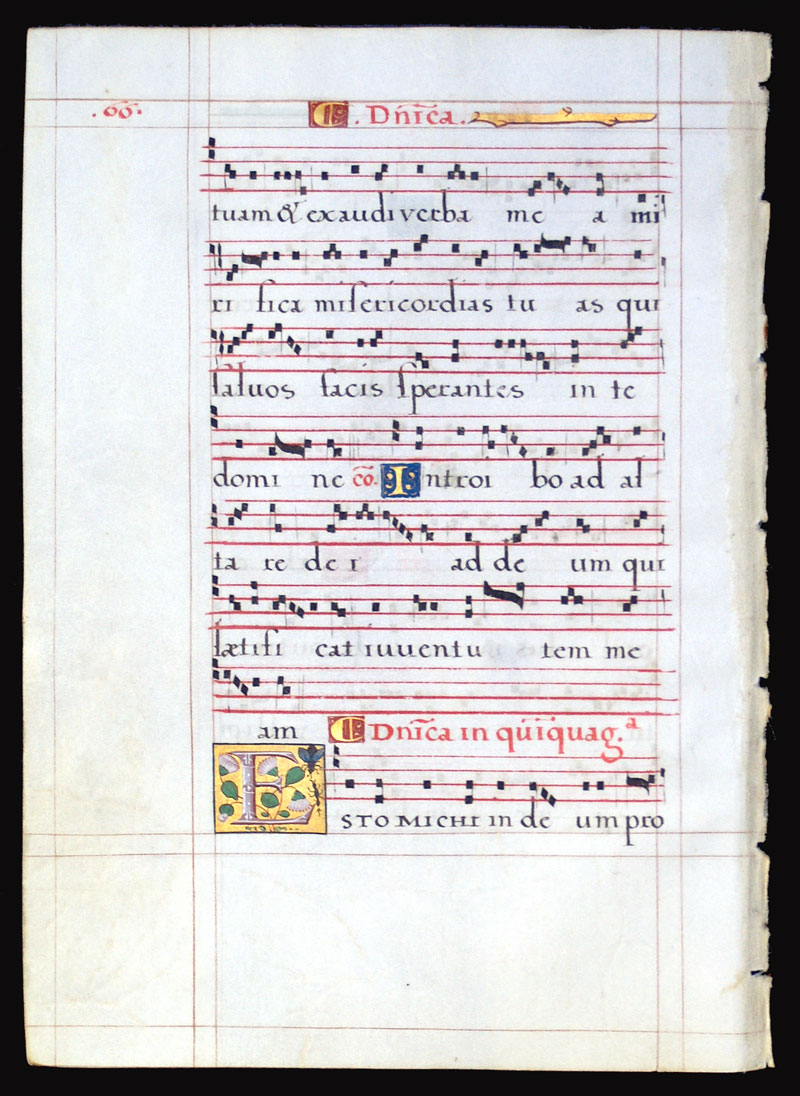 .66. . Dñica.
tuam & exaudi verba me a mi
ri fica misericordias tu as qui
saluos facis sperantes in te
domi ne cõ. Introi bo ad al
ta re de i ad de um qui
lætifi cat iuuentu tem me
am Dñica in quĩquag.a
ESTO MICHI in de um pro